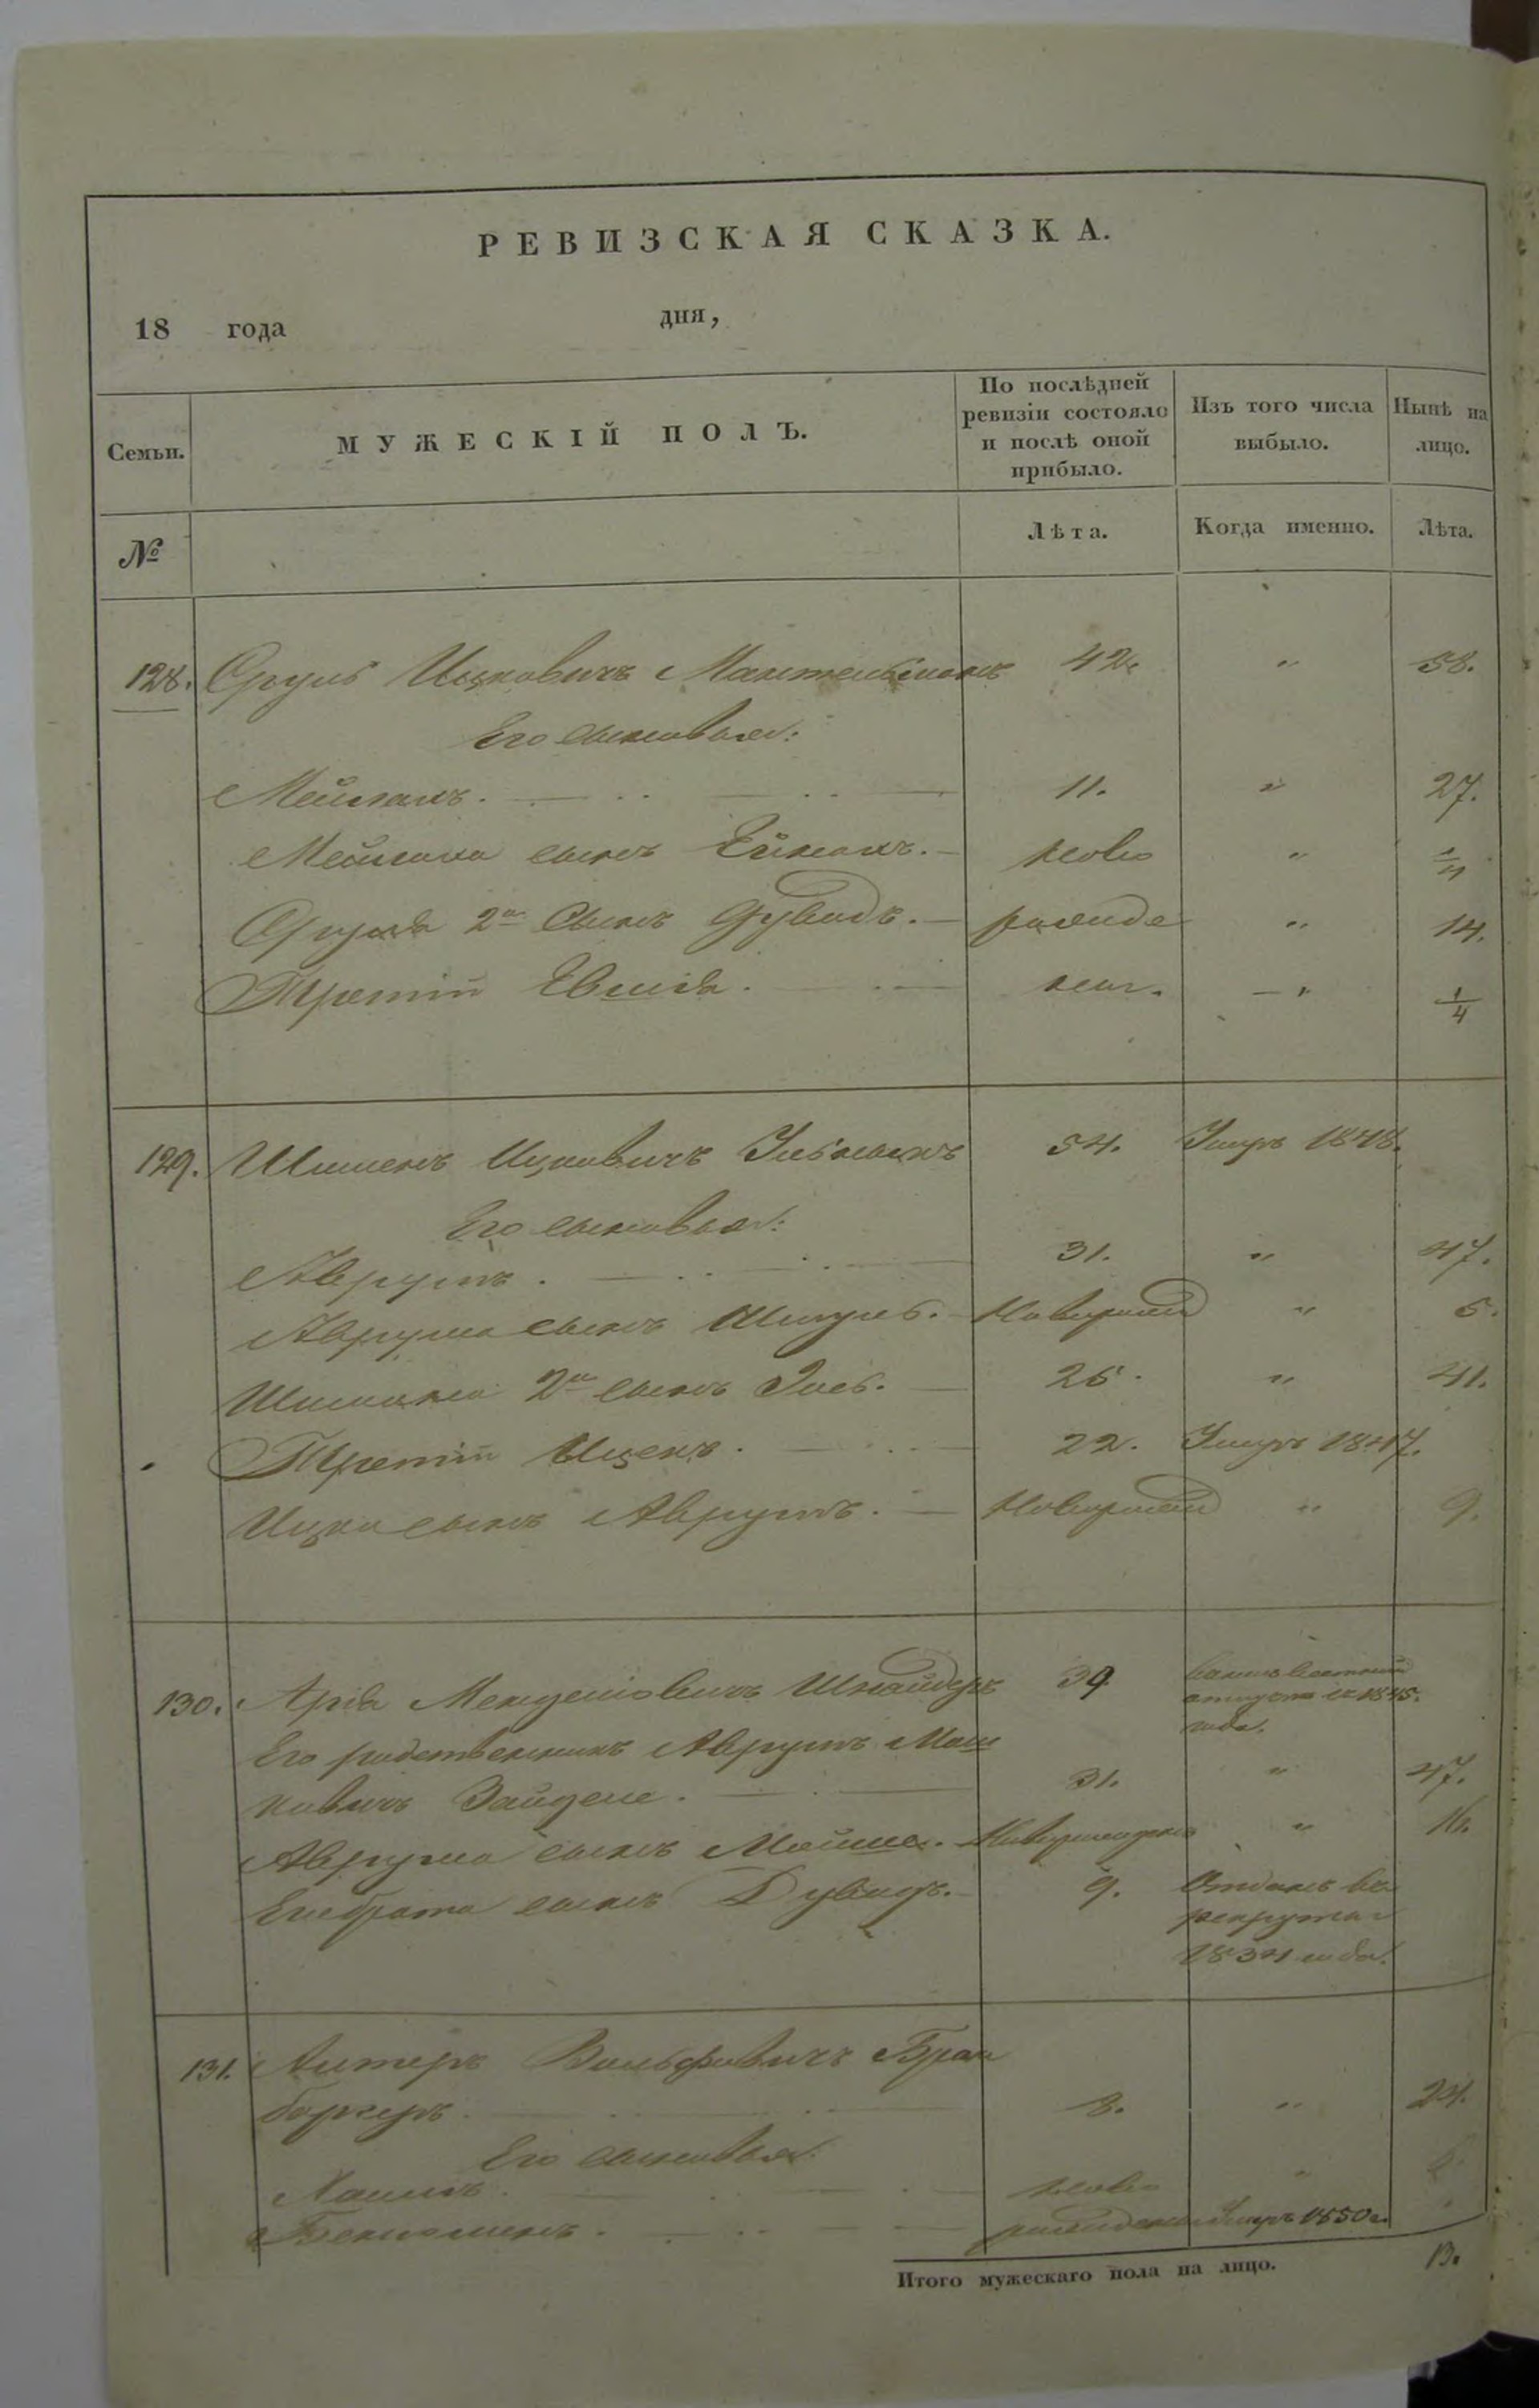 РЕВИЗСКАЯ СКАЗКА.
18 года дня,
Семьи. МУЖЕСКІЙ ПОЛЪ. По послѣдней ревизіи состояло и послѣ оной прибыло. Изъ того числа выбыло. Нынѣ на лицо.
№ Лѣта. Когда именно. Лѣта.
128. Сруль Ицковичъ 42. " 58.
Его сыновья:
Мейлахъ. 11. " 27.
Мейлаха сынъ ново "
Сруля 2й сынъ Дувидъ. рожде " 14.
Третій ные. " 1/4
129. Шимонъ Ицковичъ 54. Умеръ 1848.
Его сыновья:
Аврумъ. 31. " 47.
Аврума сынъ Шмуль. Новорожд " 6.
Шимона 2й сынъ 25. " 41.
Третій Ицекъ. 22. Умеръ 1847.
Ицка сынъ Аврумъ. Новорожд " 9.
130. Арія Менделіовичъ Шнайдеръ 39
отлучкѣ съ 1845.
года.
Его родственникъ Аврумъ Мош
ковичъ Зайделе. 31. " 47.
Аврума сынъ Мойше. Новорожденъ " 16.
Его брата сынъ Дувидъ. 9. Отданъ въ
рекруты
1834 года.
131. Алтеръ Вольфовичъ Бран
бергеръ. 8. " 24.
Его сыновья
Хаимъ. ново "
Бениоминъ. рожденные Умеръ 1850 г.
Итого мужескаго пола на лицо. 13.